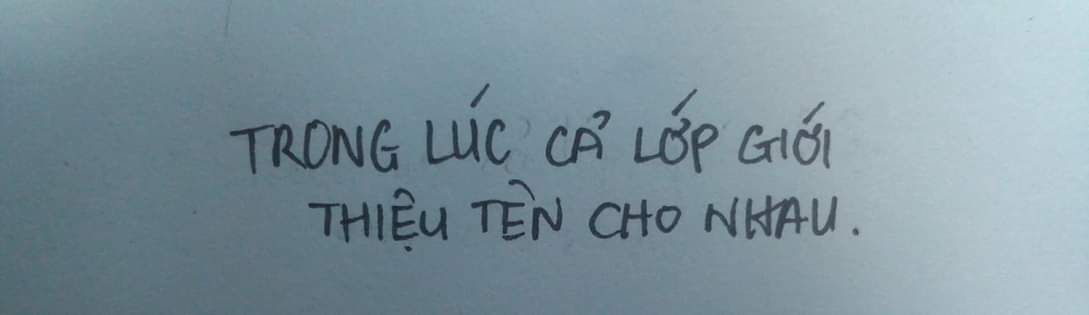 TRONG LÚC CẢ LỚP GIỚI
THIỆU TÊN CHO NHAU.